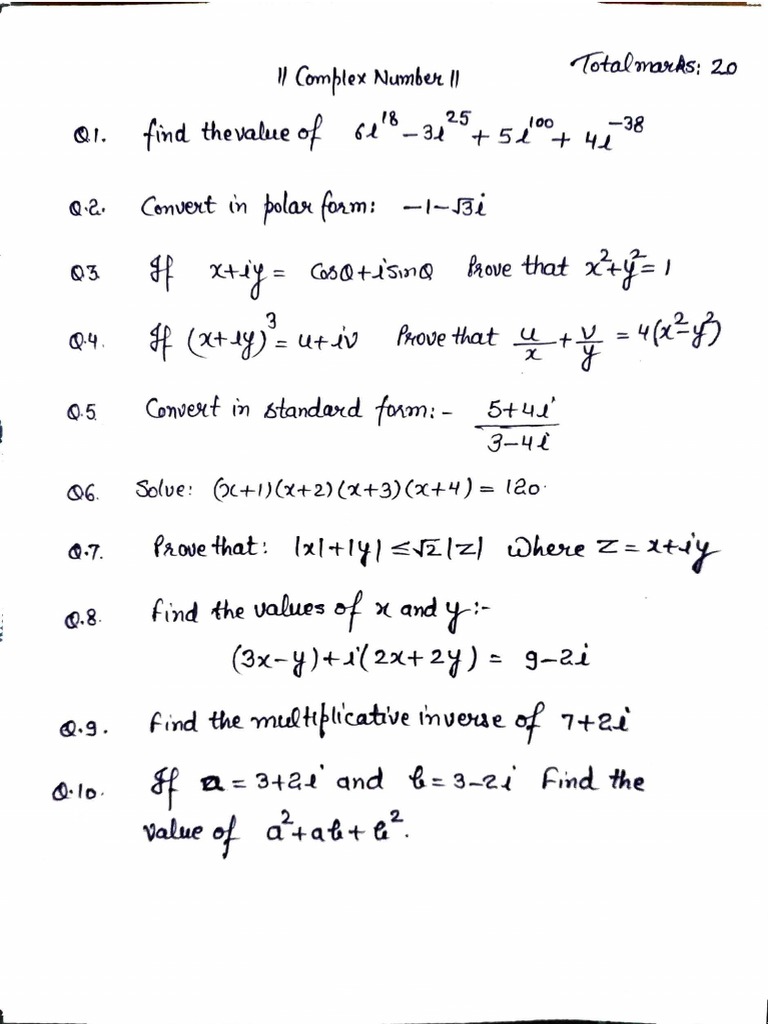 Total marks: 20
|| Complex Number ||
Q1. find the value of 6i¹⁸ – 3i²⁵ + 5i¹⁰⁰ + 4i⁻³⁸
Q.2. Convert in polar form: –1–√3i
Q3 If x+iy = cosθ+isinθ Prove that x²+y²=1
Q.4. If (x+iy)³ = u+iv Prove that u/x + v/y = 4(x²–y²)
Q.5 Convert in standard form:- (5+4i)/(3–4i)
Q6. Solve: (x+1)(x+2)(x+3)(x+4) = 120.
Q.7. Prove that: |x|+|y| ≤ √2|z| where z = x+iy
Q.8. Find the values of x and y:-
(3x–y)+i(2x+2y) = 9–2i
Q.9. Find the multiplicative inverse of 7+2i
Q.10. If a = 3+2i and b = 3–2i Find the
value of a²+ab+b².